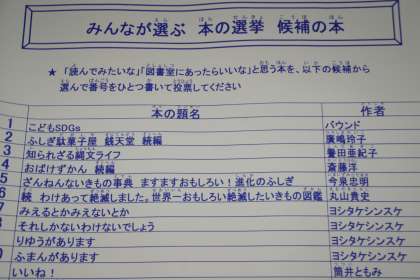 みんなが選ぶ 本の選挙 候補の本
★「読んでみたいな」「図書室にあったらいいな」と思う本を、以下の候補から
選んで番号をひとつ書いて投票してください
本の題名 作者
1 こどもSDGs バウンド
2 ふしぎ駄菓子屋 銭天堂 続編 廣嶋玲子
3 知られざる縄文ライフ 譽田亜紀子
4 おばけずかん 続編 斎藤洋
5 ざんねんないきもの事典 ますますおもしろい!進化のふしぎ 今泉忠明
6 続 わけあって絶滅しました。世界一おもしろい絶滅したいきもの図鑑 丸山貴史
7 みえるとかみえないとか ヨシタケシンスケ
8 それしかないわけないでしょう ヨシタケシンスケ
9 りゆうがあります ヨシタケシンスケ
0 ふまんがあります ヨシタケシンスケ
いいね! 筒井ともみ